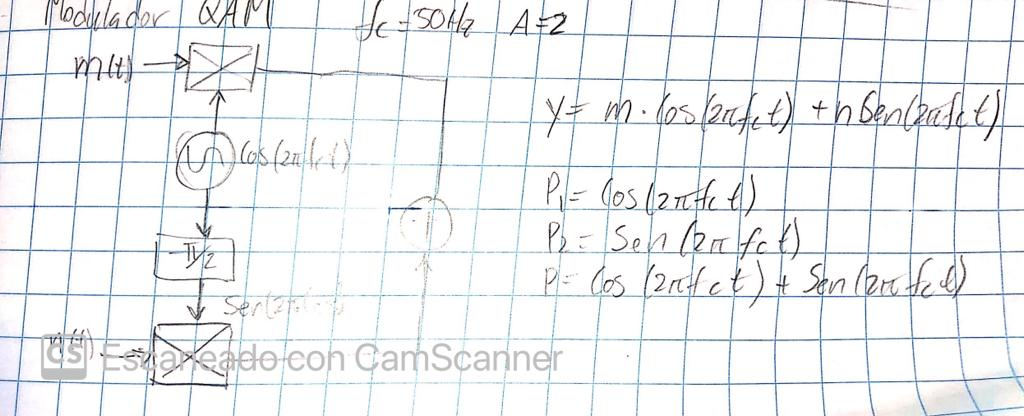 Modulador QAM fc=50Hz A=2
m(t)
y= m·Cos(2πfct) +nSen(2πfct)
Cos(2πfct)
P1= Cos(2πfct)
P2= Sen(2πfct)
-π/2
P= Cos(2πfct) + Sen(2πfct)
n(t)
CS Escaneado con CamScanner